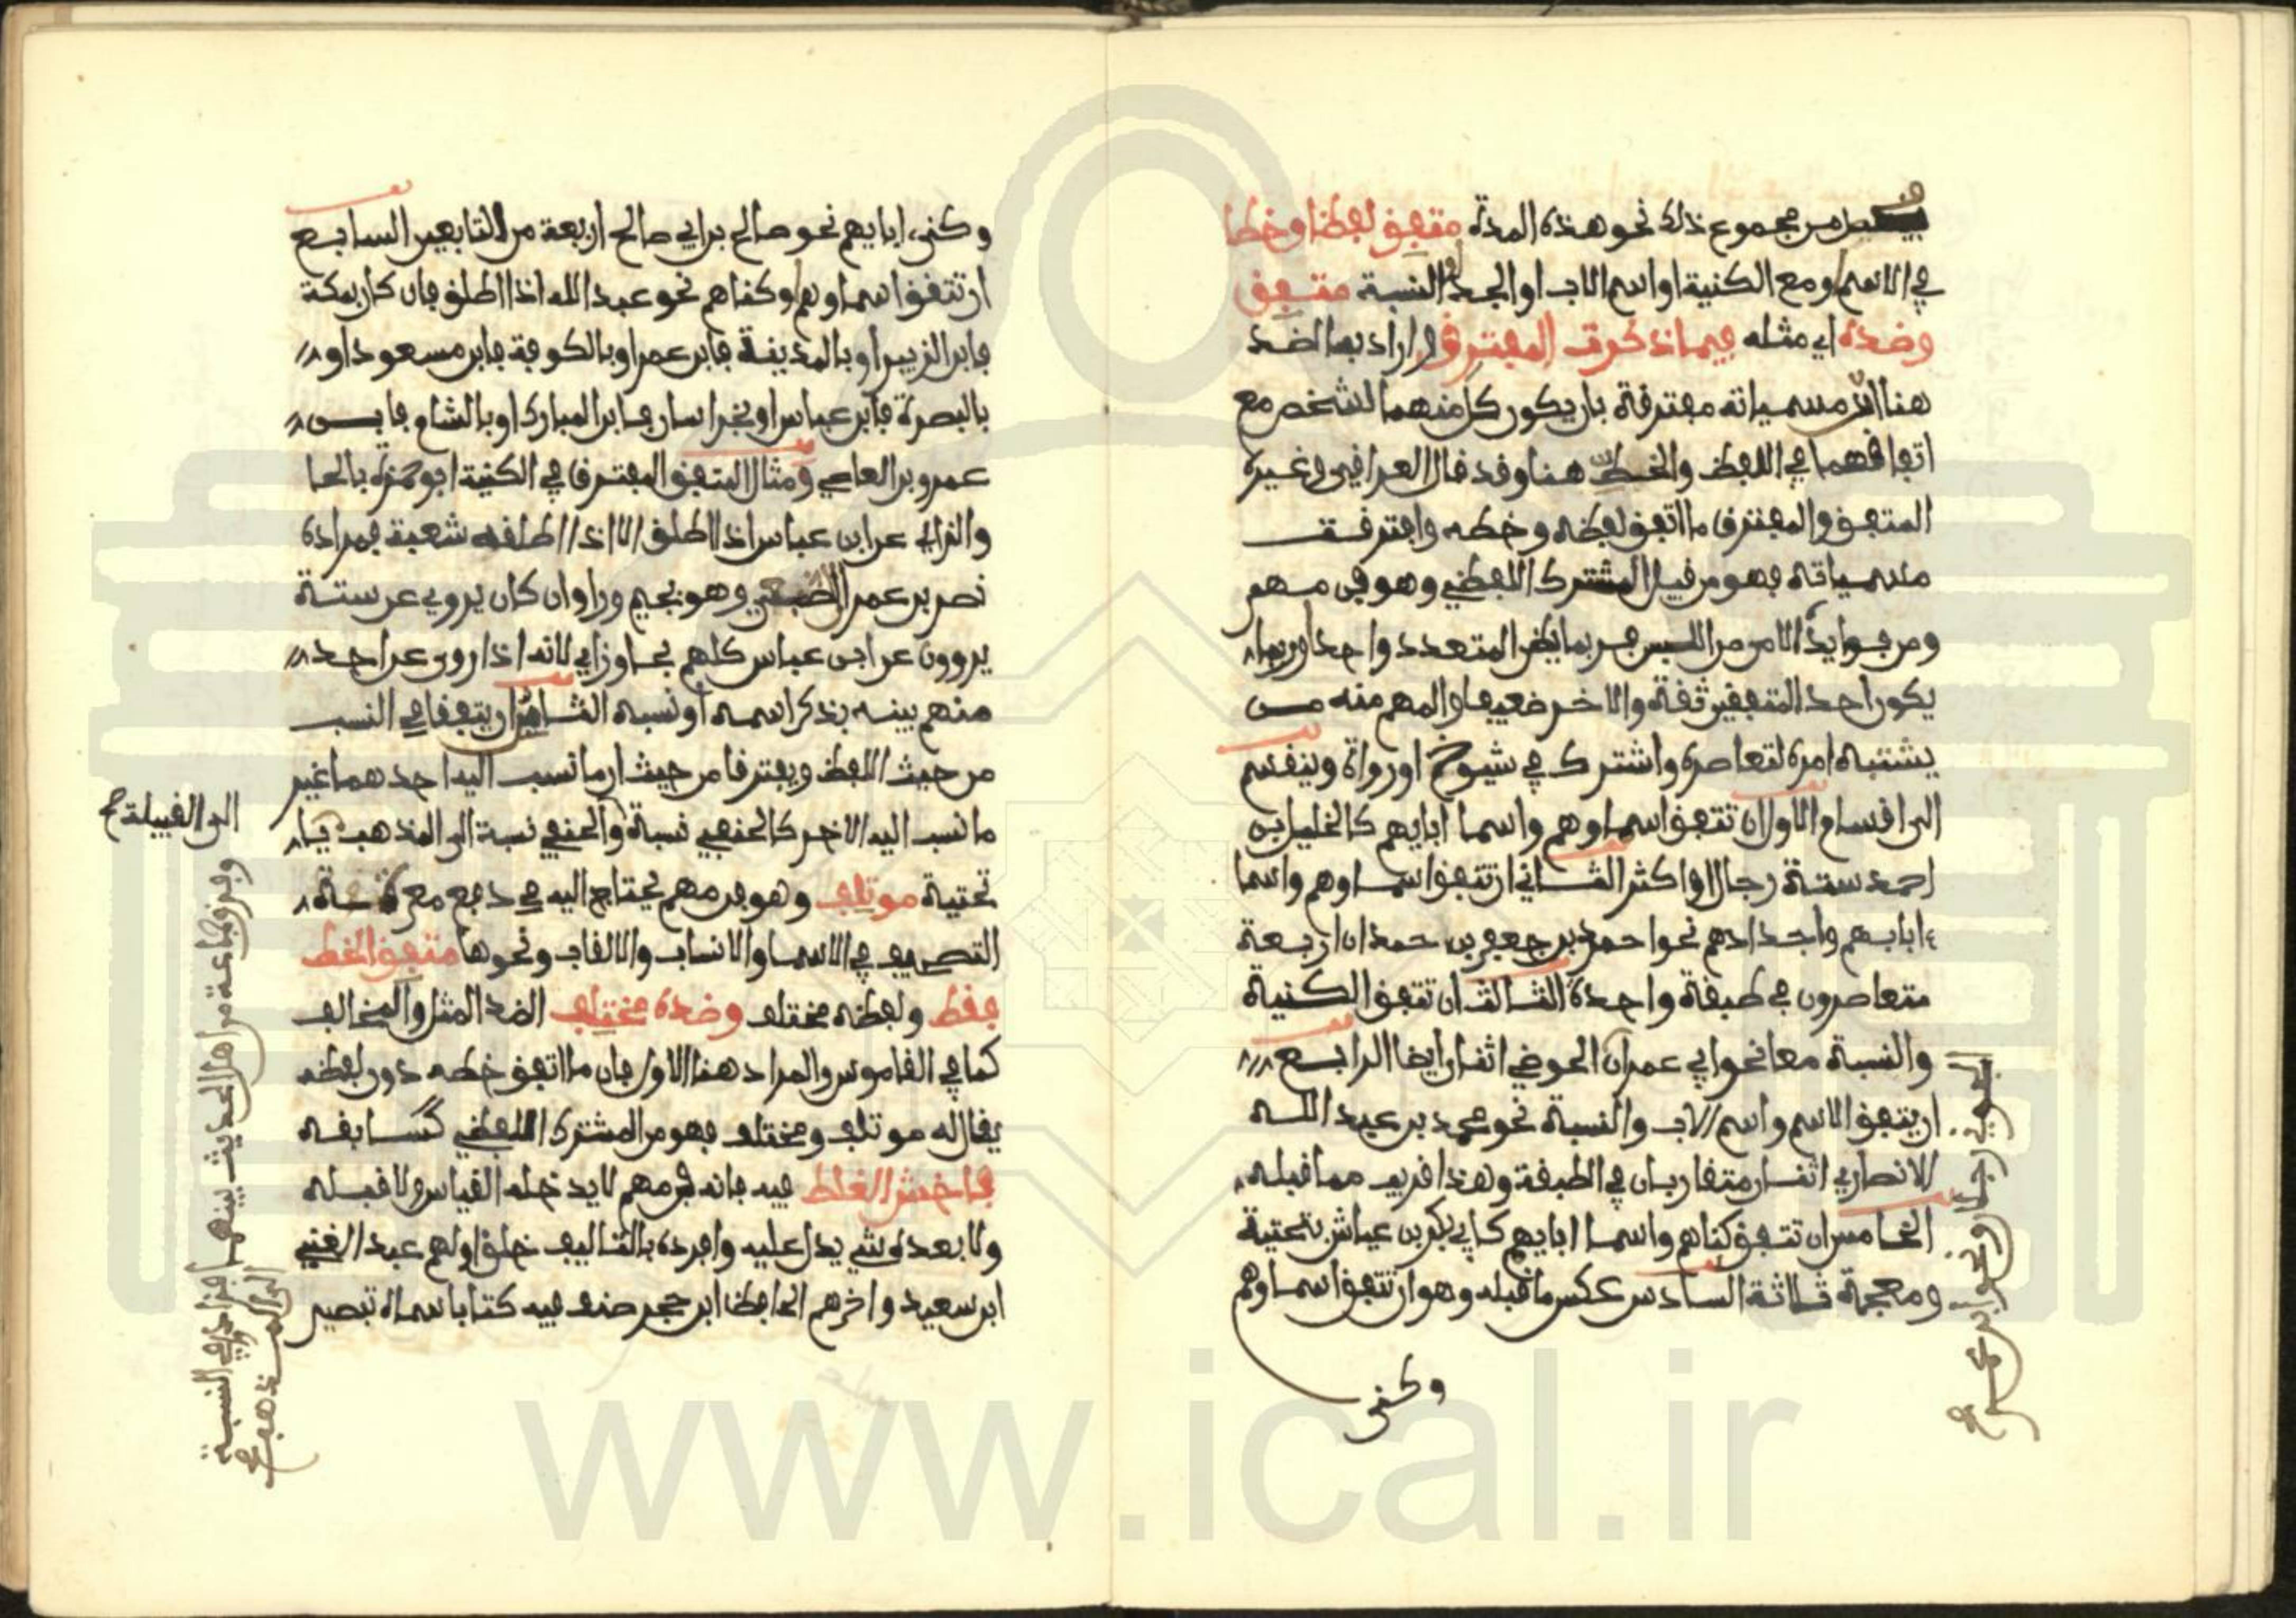 من مجموع ذلك نحو هذه المدة متفق لفظا وخطا
في الاسم او مع الكنية او اسم الاب او الجد او النسبة متفق
وضده اي مثله فيما ذكرت المفترق و اراد بها الضد
هنا اذ مسمياته مفترقة بان يكون كل منهما لشخص مع
اتفاقهما في اللفظ والخط هنا وقد قال العراقي وغيره
المتفق والمفترق ما اتفق لفظه وخطه وافترقت
مسمياته فهو من قبيل المشترك اللفظي وهو فن مهم
ومن فوايده الامن من اللبس فربما يظن المتعدد واحدا وربما
يكون احد المتفقين ثقة والاخر ضعيفا والمهم منه من
يشتبه امره لتعاصره واشترك في شيوخ او رواة وينقسم
الى اقسام الاول ان تتفق اسماوهم واسما ابايهم كالخليل بن
احمد ستة رجال او اكثر الثاني ان تتفق اسماوهم واسما
ابايهم واجدادهم نحو احمد بن جعفر بن حمدان اربعة
متعاصرون في طبقة واحدة الثالث ان تتفق الكنية
والنسبة معا نحو ابي عمران الجوني اثنان ايضا الرابع
ان يتفق الاسم واسم الاب والنسبة نحو محمد بن عبد الله
الانصاري اثنان متقاربان في الطبقة وهذا قريب مما قبله
الخامس ان تتفق كناهم واسما ابايهم كابي بكر بن عياش بتحتية
ومعجمة ثلاثة السادس عكس ما قبله وهو ان تتفق اسماوهم
وكنى
وكنى ابايهم نحو صالح بن ابي صالح اربعة من التابعين السابع
ان تتفق اسماوهم او كناهم نحو عبد الله اذا اطلق فان كان بمكة
فابن الزبير او بالمدينة فابن عمر او بالكوفة فابن مسعود او
بالبصرة فابن عباس او بخراسان فابن المبارك او بالشام فابن
عمرو بن العاصي ومثال المتفق المفترق في الكنية ابو حمزة بالحا
والزاي عن ابن عباس اذا اطلق الا اذا اطلقه شعبة فمراده
نصر بن عمر الضبعي وهو بجيم ورا وان كان يروي عن ستة
يروون عن ابن عباس كلهم بحا وزاي لانه اذا روى عن احد
منهم بينه بذكر اسمه او نسبه الثامن ان يتفقا في النسب
من حيث اللفظ ويفترقا من حيث ان ما نسب اليه احدهما غير
ما نسب اليه الاخر كالحنفي نسبة والحنفي نسبة الى المذهب
الى القبيلة ح
تحتية موتلف وهو فن مهم يحتاج اليه في دفع معرة
التصحيف في الاسما والانساب والالقاب ونحوها متفق الخط
فقط ولفظه مختلف وضده مختلف الضد المثل والمخالف
كما في القاموس والمراد هنا الاول فان ما اتفق خطه دون لفظه
يقال له موتلف ومختلف فهو من المشترك اللفظي كسابقه
فاخش الغلط فيه فانه فن مهم لا يدخله القياس ولا قبله
ولا بعده شي يدل عليه وافرده بالتاليف خلق اولهم عبد الغني
ابن سعيد واخرهم الحافظ ابن حجر صنف فيه كتابا سماه تبصير
وفرق جماعة من اهل الحديث بينهما فزاد في النسبة
الى المذهب
www.ical.ir